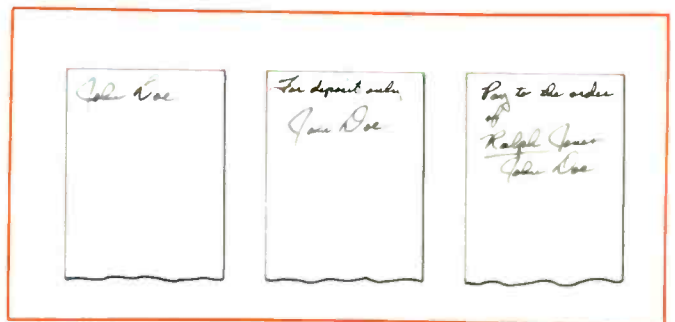 John Doe
For deposit only
John Doe
Pay to the order
of
Ralph Jones
John Doe